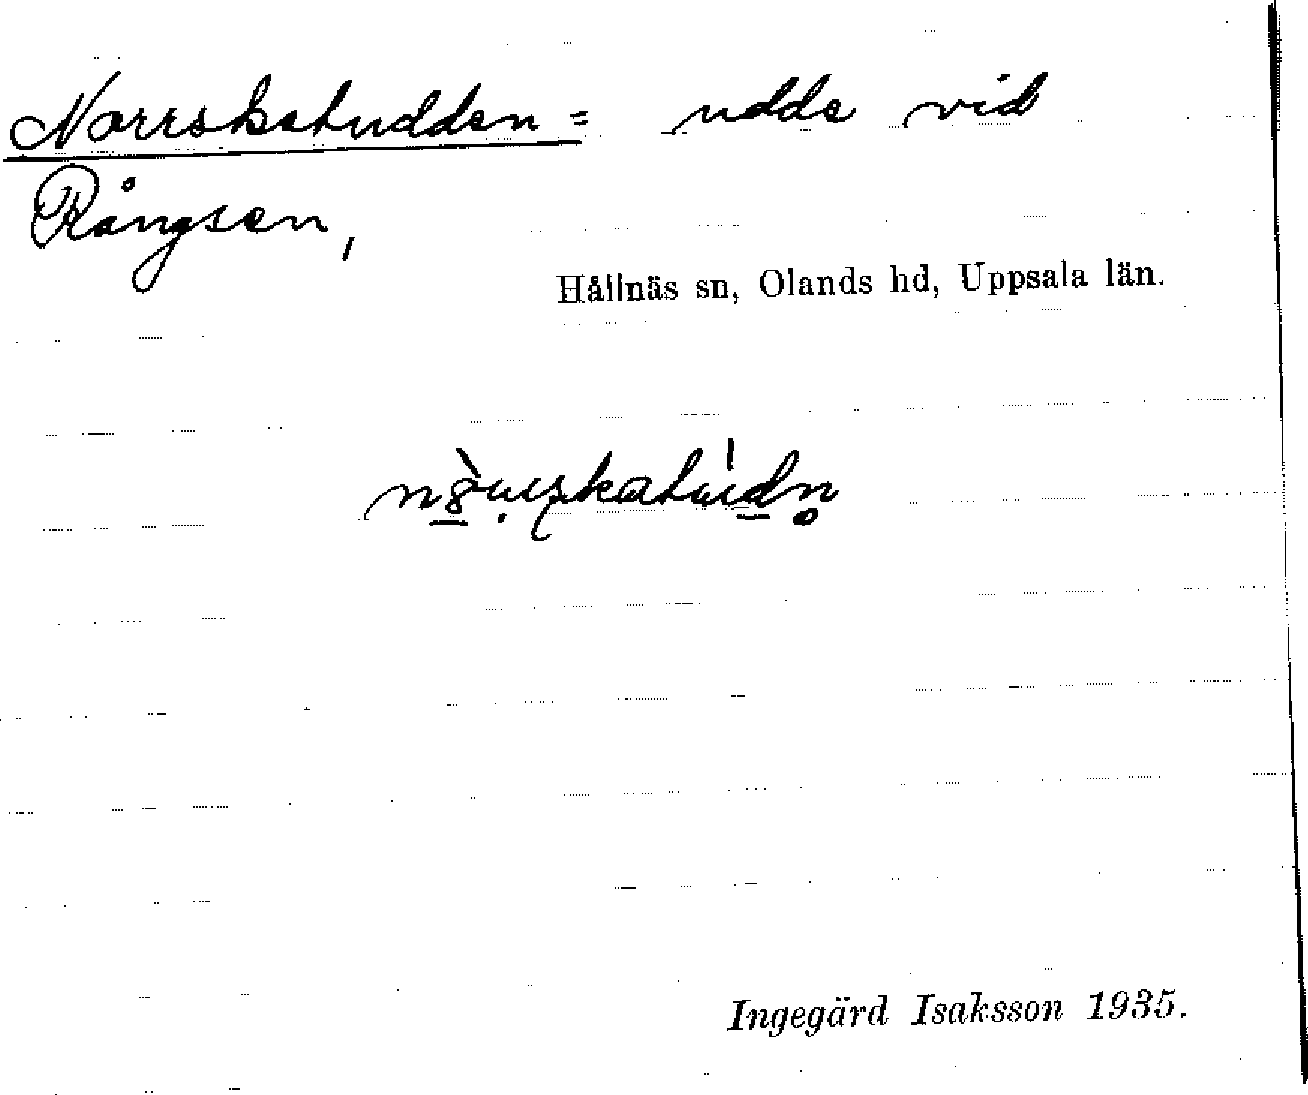 Norrskatudden = udde vid
Rångsen,
Hållnäs sn, Olands hd, Uppsala län.
Ingegärd Isaksson 1935.